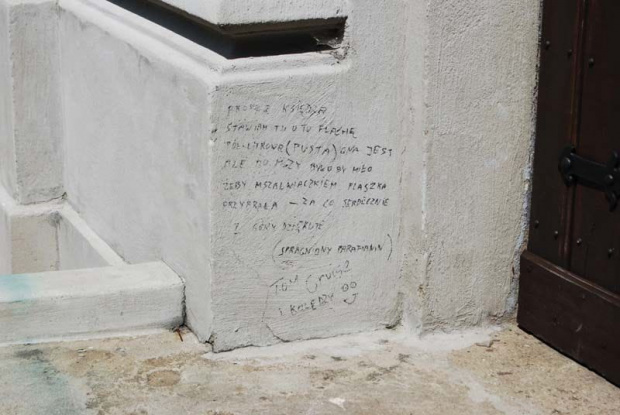 PROSZĘ KSIĘDZA
STAWIAM TU OTO FLACHĘ
PÓŁLITROWĄ (PUSTA) ONA JEST
ALE DO MSZY BYŁOBY MIŁO
ŻEBY MSZALNIACZKIEM FLASZKA
PRZYBRAŁA – ZA CO SERDECZNIE
Z GÓRY DZIĘKUJĘ
(SPRAGNIONY PARAFIANIN)
I KOLEDZY